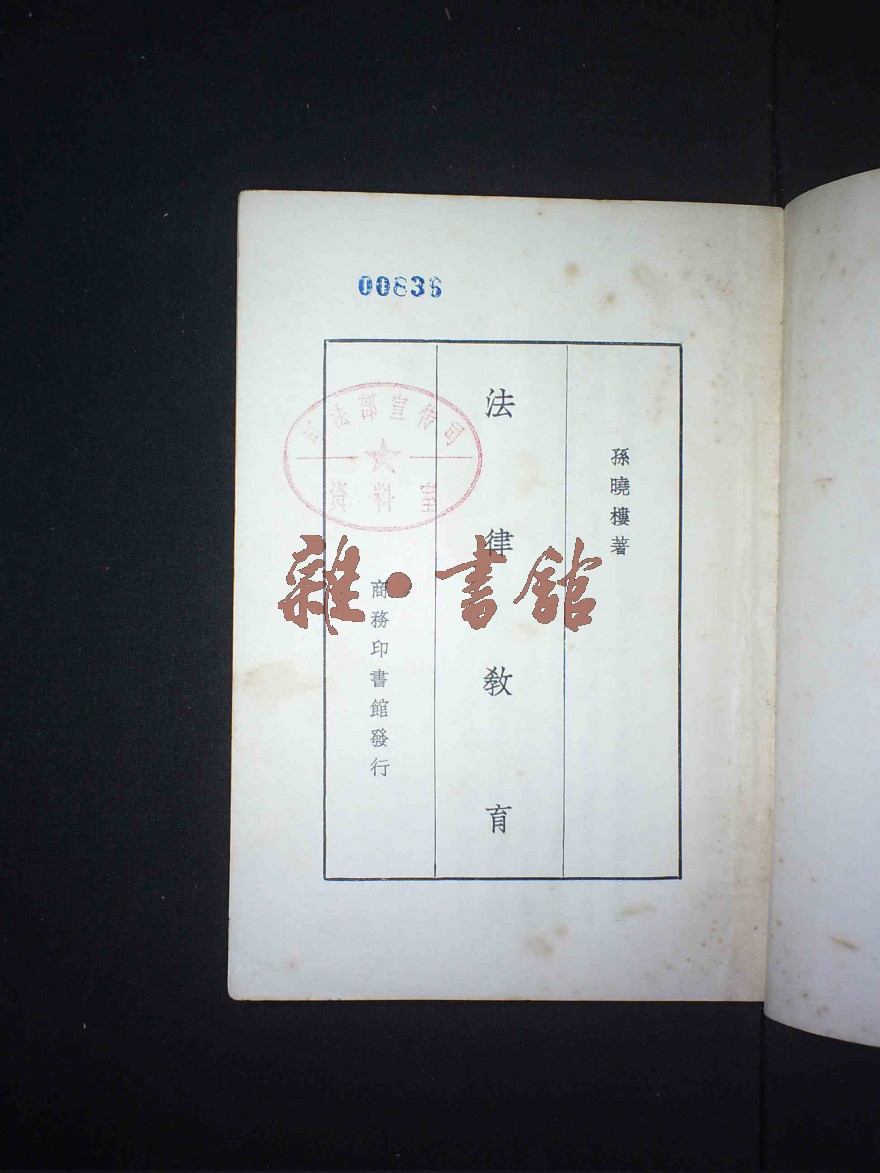 00836
孫曉樓著
法律教育
商務印書館發行
司法部宣传司
资料室
雜·書館